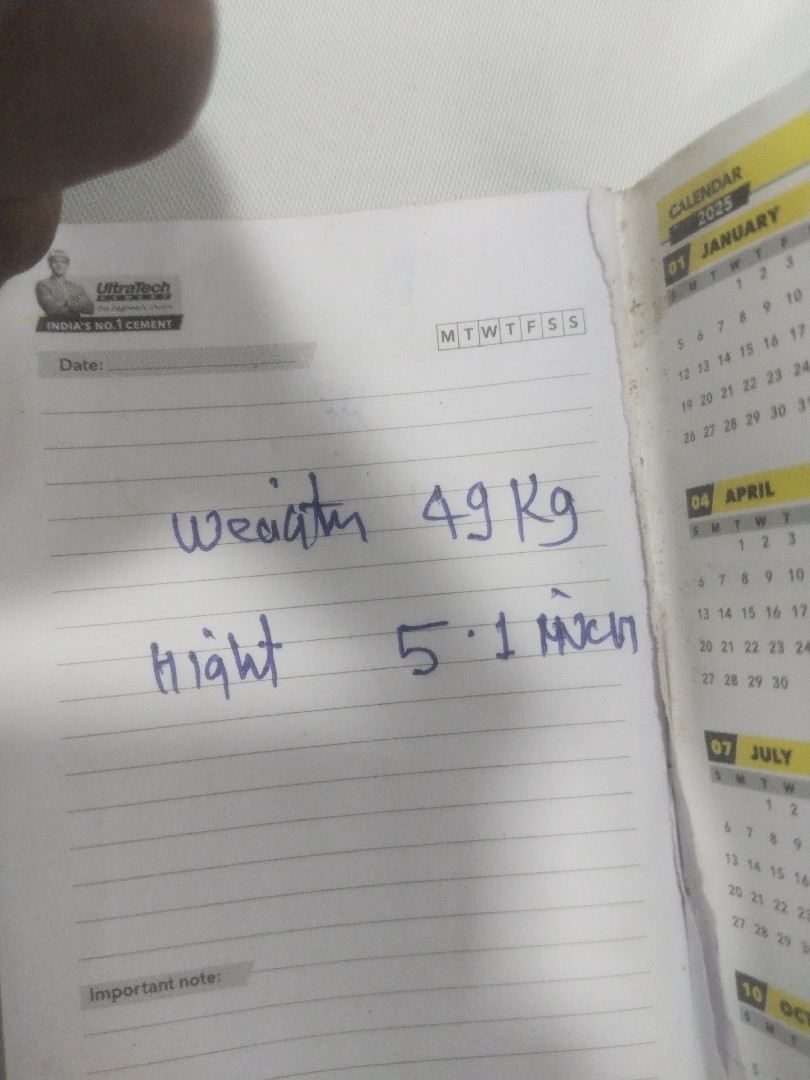 UltraTech
CEMENT
The Engineer's Choice
INDIA'S NO.1 CEMENT
M T W T F S S
Date:
Weight 49 Kg
Hight 5.1 inch
Important note:
CALENDAR
2025
01 JANUARY
S M T W T F
1 2 3
5 6 7 8 9 10
12 13 14 15 16 17
19 20 21 22 23 24
26 27 28 29 30 31
04 APRIL
S M T W T
1 2 3
6 7 8 9 10
13 14 15 16 17
20 21 22 23 24
27 28 29 30
07 JULY
S M T W
1 2
6 7 8 9
13 14 15 16
20 21 22 23
27 28 29
10 OCT
S M T
5